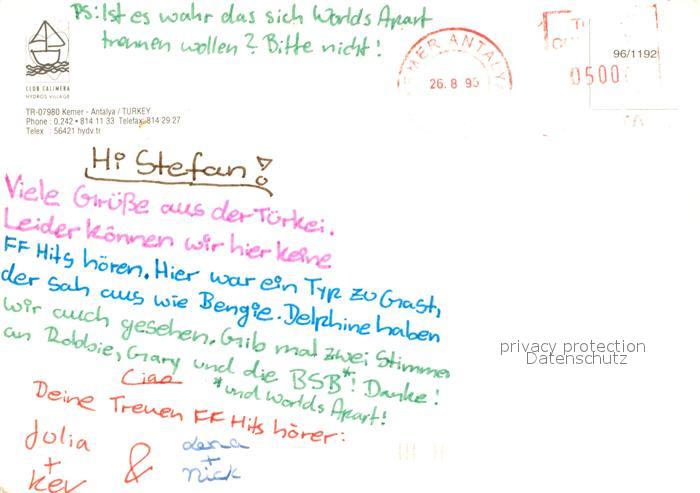 PS: Ist es wahr das sich Worlds Apart
trennen wollen? Bitte nicht!
KEMER ANTALYA
26.8 96
96/1192
0500
CLUB CALIMERA
HYDROS VILLAGE
TR-07980 Kemer - Antalya / TURKEY
Phone : 0.242 • 814 11 33 Telefax: 814 29 27
Telex : 56421 hydv.tr
Hi Stefan!
Viele Grüße aus der Türkei.
Leider können wir hier keine
FF Hits hören. Hier war ein Typ zu Gast,
der sah aus wie Bengie. Delphine haben
wir auch gesehen. Gib mal zwei Stimmen
an Robbie, Gary und die BSB*! Danke!
Ciao *und Worlds Apart!
Deine Treuen FF Hits hörer:
Julia & Lena
+ +
Kev Nick
privacy protection
Datenschutz